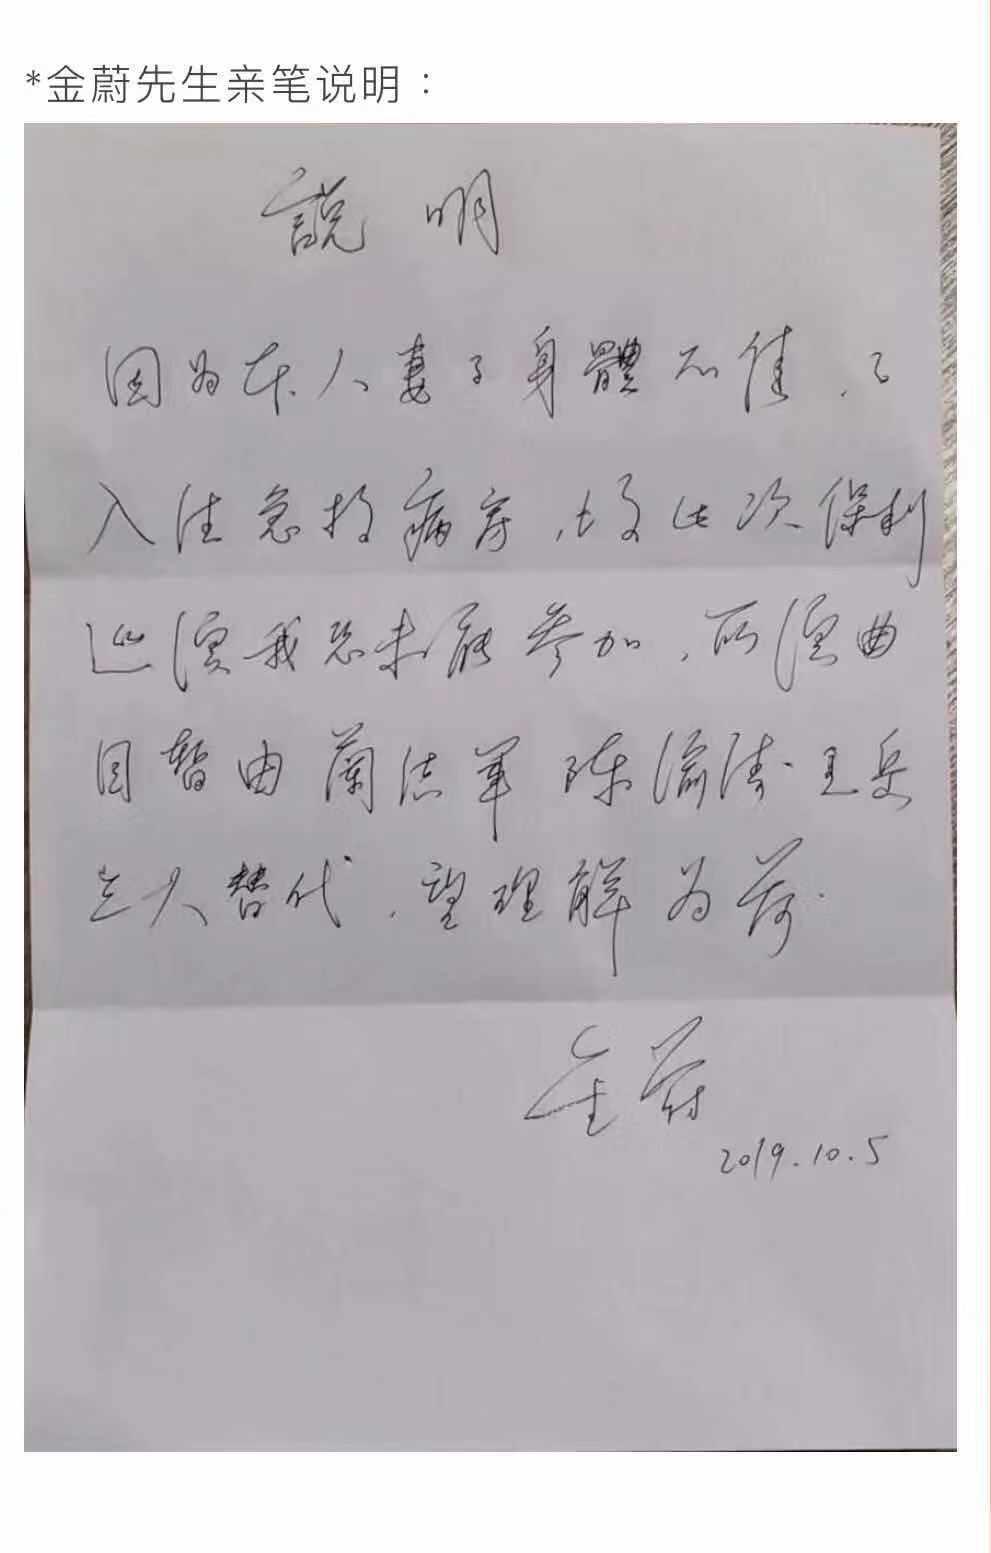 *金蔚先生亲笔说明：
說明
因为本人妻子身體不佳，已
入住急救病房，故此次保利
巡演我恐未能参加，所演曲
目暂由蘭洁军 陈瀹涛 王岳
三人替代，望理解为荷.
金蔚
2019.10.5